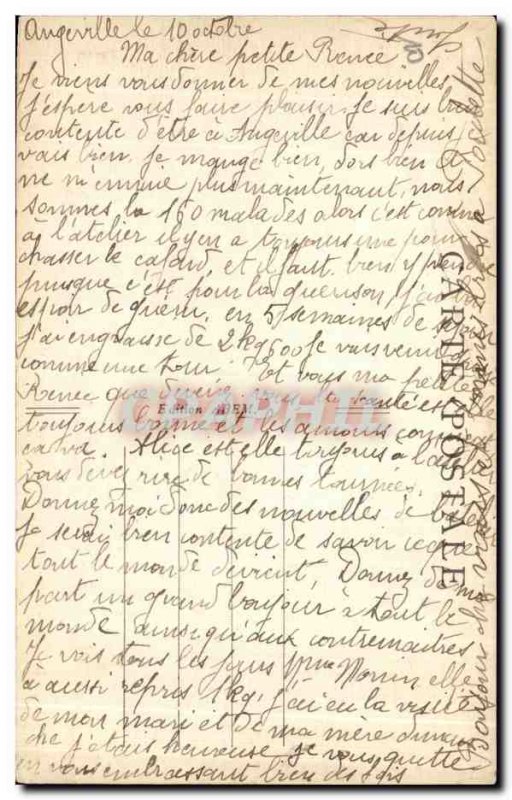 Angeville le 10 octobre
Ma chère petite Renée
Je viens vous donner de mes nouvelles
j'espère vous faire plaisir je suis bien
contente d'être à Angeville car depuis
vais bien. je mange bien, dors bien et
ne m'ennuie plus maintenant, nous
sommes là 150 malades alors c'est comme
à l'atelier il y en a toujours une pour
chasser le cafard, et il faut bien y
puisque c'est pour la guérison, j'ai
espoir de guérir. en 5 semaines de
j'ai engraissé de 2kg600 je vais
comme une tour. Et vous ma petite
Renée que devenez vous la santé est elle
toujours bonne et les amours comment
ca va. Alice est elle toujours à l'atelier
vous devez rire de bonnes tournées.
Donnez moi donc des nouvelles de
je serai bien contente de savoir ce que
tout le monde devient, Donnez de ma
part un grand bonjour à tout le
monde ainsi qu'aux contremaitres
Je vois tous les jours Mme elle
à aussi repris 1kg, j'ai eu la visite
de mon mari et de ma mère dimanche
j'étais heureuse je vous quitte
en vous embrassant bien des fois
Bonjour chez vous
CARTE POSTALE
Edition